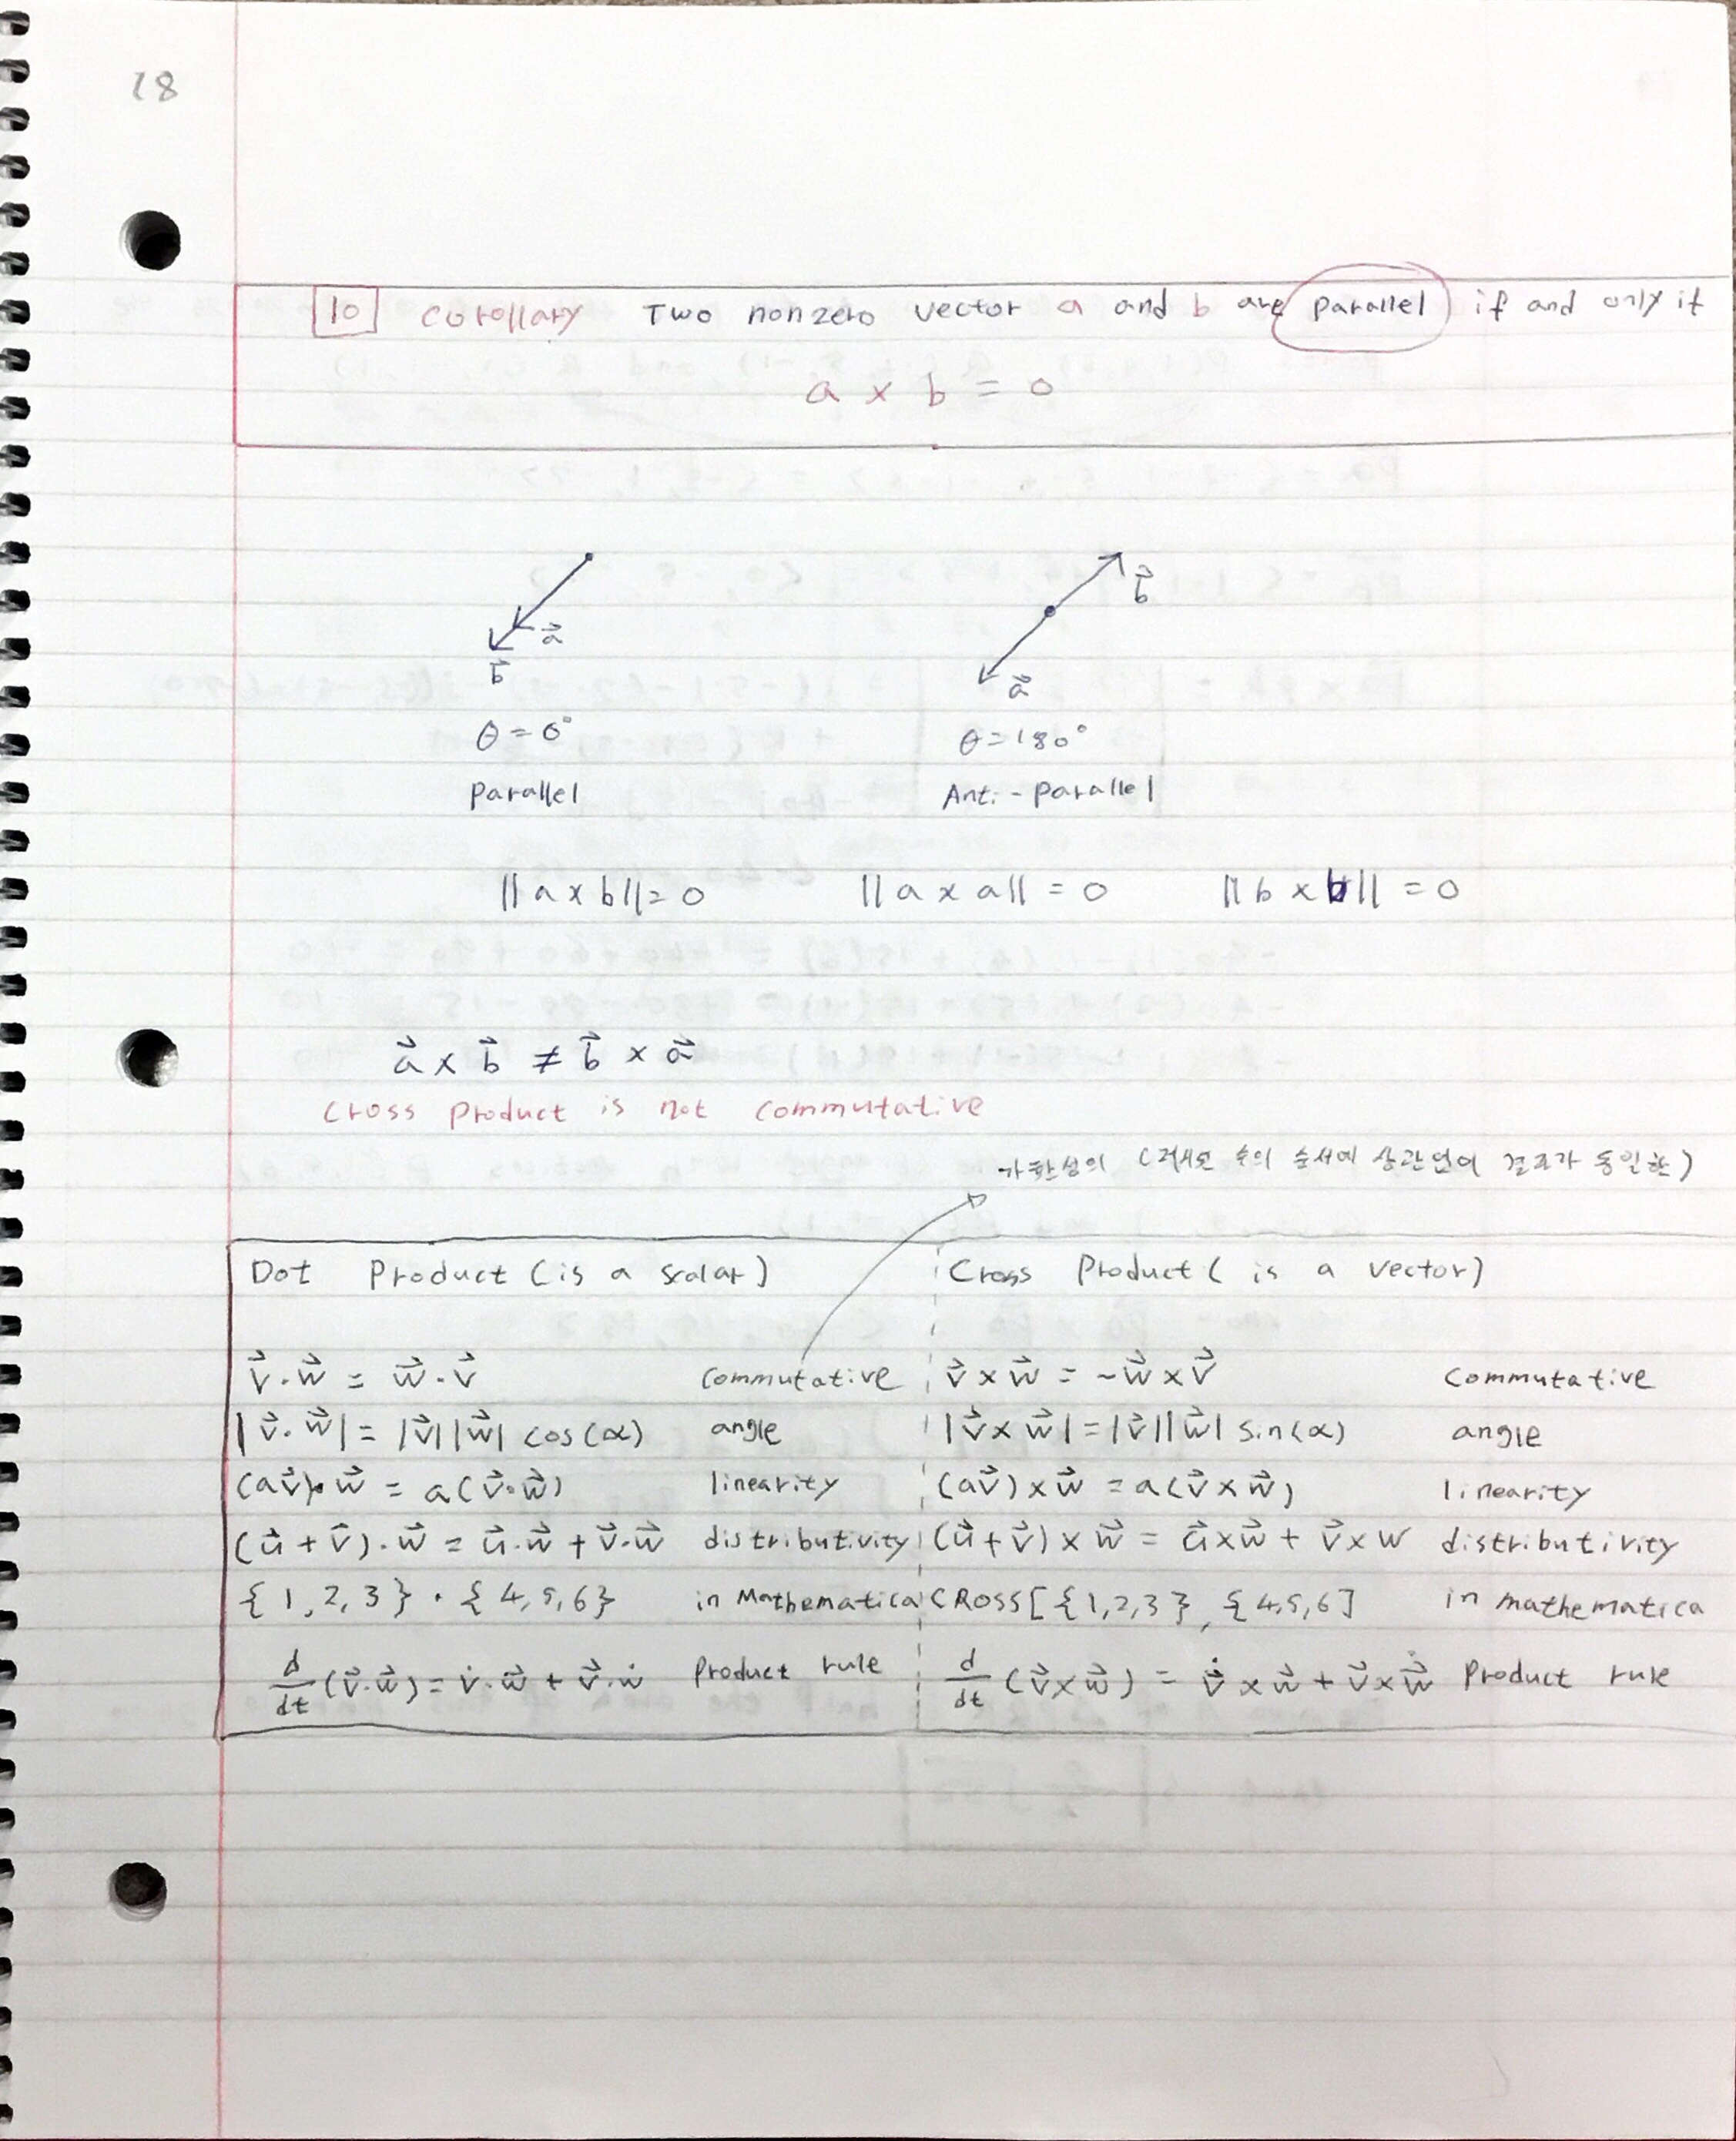 18
10 Corollary Two nonzero vector a and b are parallel if and only if
a × b = 0
a⃗
b⃗
b⃗
a⃗
θ = 0° θ = 180°
Parallel Anti-parallel
||a × b|| = 0 ||a × a|| = 0 ||b × b|| = 0
a⃗ × b⃗ ≠ b⃗ × a⃗
Cross product is not commutative
가환성의 ( 수의 순서에 상관없이 결과가 동일한)
Dot Product (is a scalar) Cross Product ( is a vector)
v⃗·w⃗ = w⃗·v⃗ commutative v⃗ × w⃗ = -w⃗ × v⃗ commutative
|v⃗·w⃗| = |v⃗||w⃗| cos(α) angle |v⃗ × w⃗| = |v⃗||w⃗| sin(α) angle
(av⃗)·w⃗ = a(v⃗·w⃗) linearity (av⃗) × w⃗ = a(v⃗ × w⃗) linearity
(u⃗ + v⃗)·w⃗ = u⃗·w⃗ + v⃗·w⃗ distributivity (u⃗ + v⃗) × w⃗ = u⃗ × w⃗ + v⃗ × w distributivity
{1,2,3} · {4,5,6} in Mathematica CROSS[{1,2,3}, {4,5,6] in mathematica
d/dt (v⃗·w⃗) = v̇·w⃗ + v⃗·ẇ Product rule d/dt (v⃗ × w⃗) = v⃗̇ × w⃗ + v⃗ × w⃗̇ Product rule